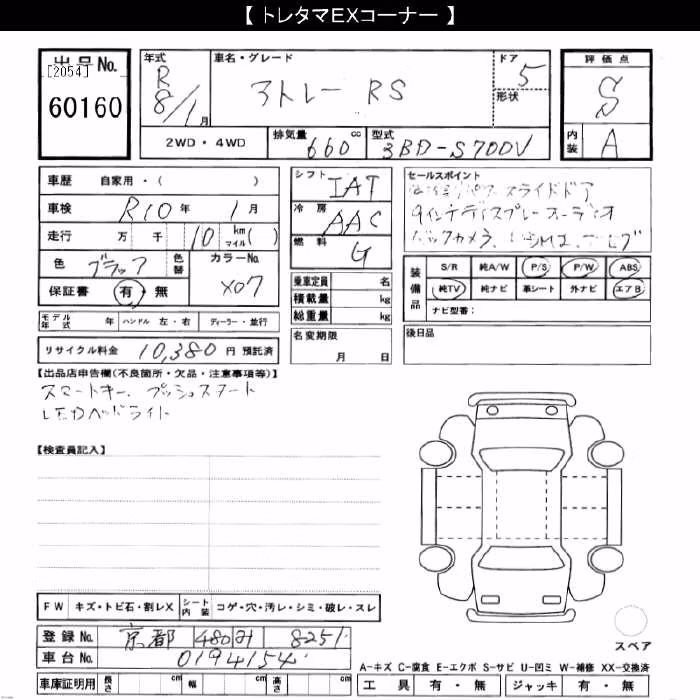 【 トレタマEXコーナー 】
出品No.
[2054]
60160
年式
R
8/1月
車名・グレード
アトレー RS
ドア
5
形状
評価点
S
内装
A
2WD・4WD
排気量
660
cc
型式
3BD-S700V
車歴 自家用・( )
車検 R10年 1月
走行 万 千 10 km マイル( )
色 ブラック
色替
カラーNo.
X07
保証書 有・無
シフト IAT
冷房 AAC
燃料 G
乗車定員 名
積載量 kg
総重量 kg
セールスポイント
スライドドア
9インチディスプレーオーディオ
バックカメラ、
装備品
S/R 純A/W P/S P/W ABS
純TV 純ナビ 革シート 外ナビ エアB
ナビ型番:
モデル年式 年 ハンドル 左・右 ディーラー・並行
リサイクル料金 10,380 円 預託済
名変期限
月 日
後日品
【出品店申告欄(不良箇所・欠品・注意事項等)】
スマートキー、プッシュスタート
LEDヘッドライト
【検査員記入】
FW キズ・トビ石・割レX シート内装 コゲ・穴・汚レ・シミ・破レ・スレ
登録No. 京都 480 8251
車台No. 0194154
車庫証明用 長さ cm 幅 cm 高さ cm
スペア
A-キズ C-腐食 E-エクボ S-サビ U-凹ミ W-補修 XX-交換済
工具 有・無 ジャッキ 有・無